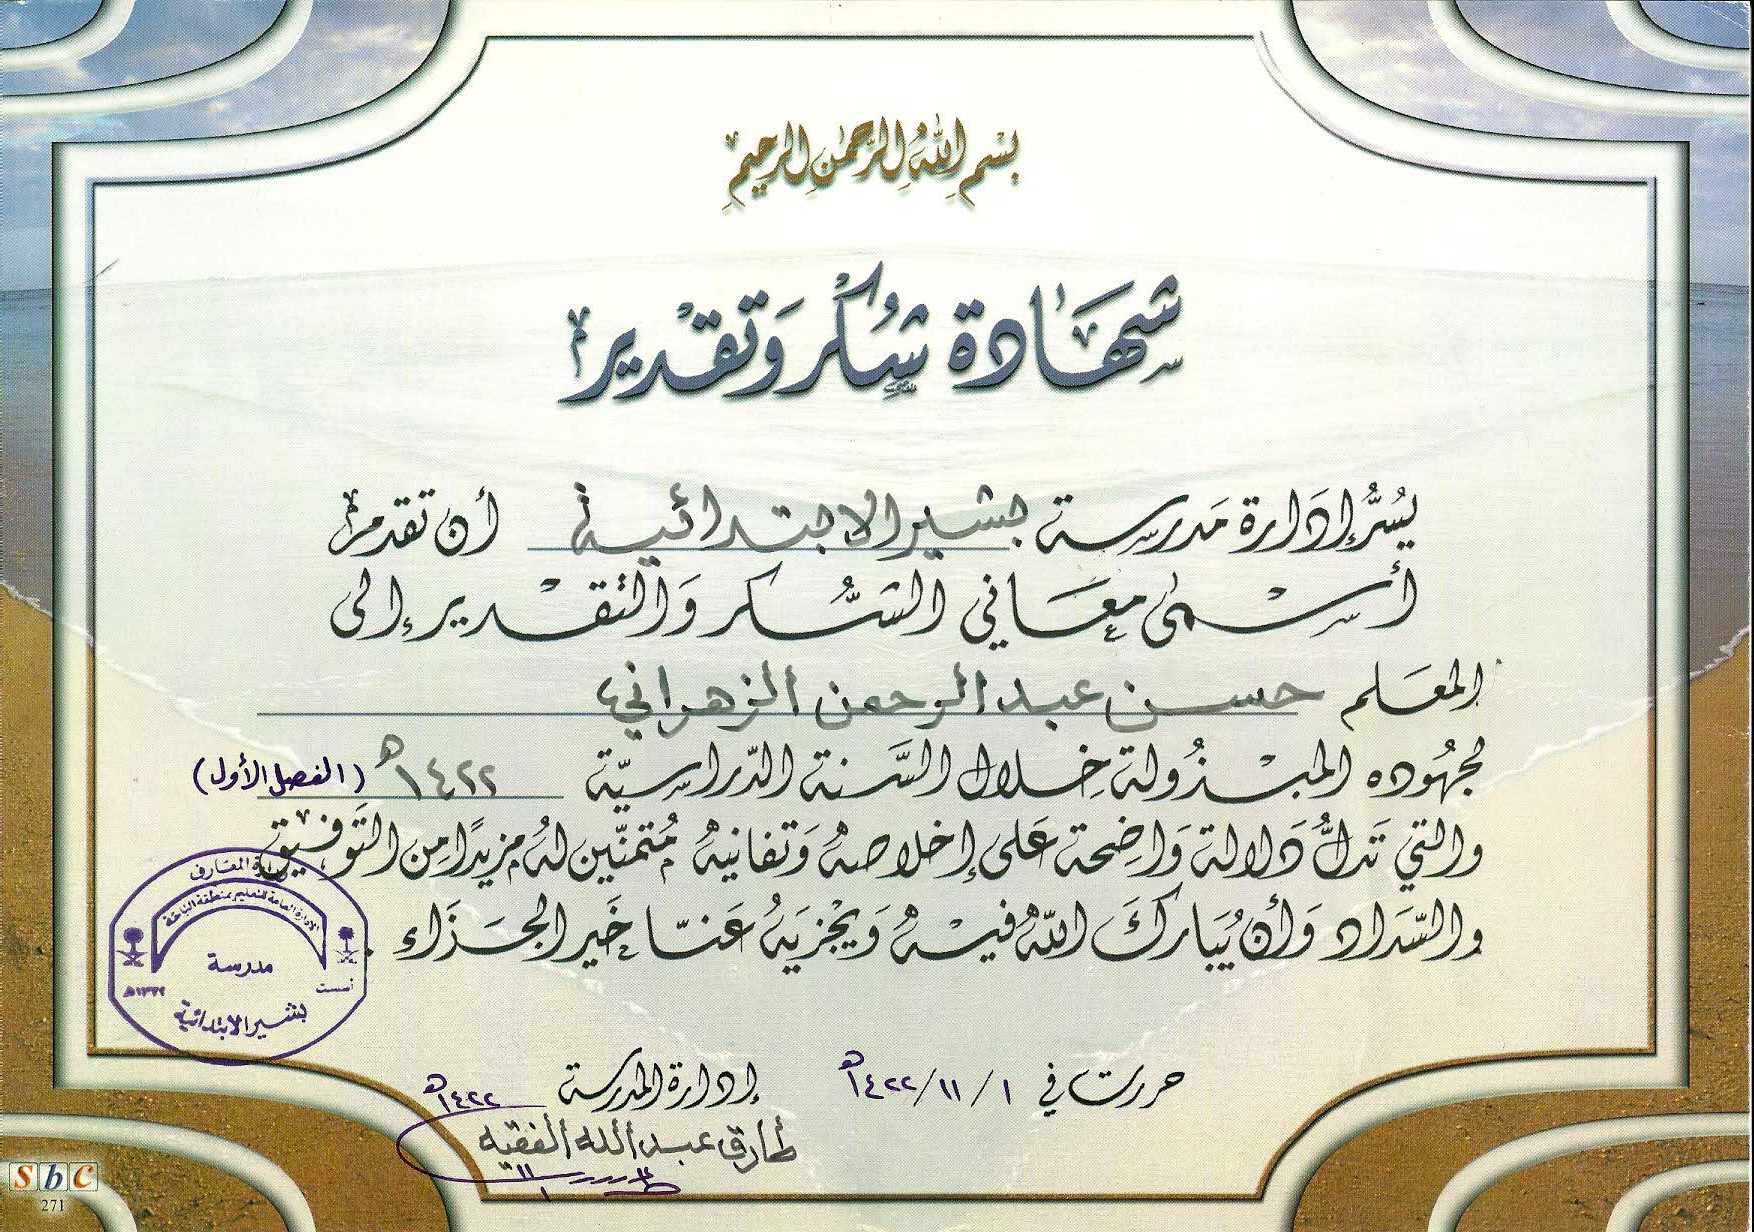 بسم الله الرحمن الرحيم
شهادة شكر وتقدير
يسر إدارة مدرسة بشير الابتدائية أن تقدم
أسمى معاني الشكر والتقدير إلى
المعلم حسن عبد الرحمن الزهراني
لجهوده المبذولة خلال السنة الدراسية ١٤٢٢هـ (الفصل الأول)
والتي تدل دلالة واضحة على إخلاصه وتفانيه متمنين له مزيدًا من التوفيق
والسداد وأن يبارك الله فيه ويجزيه عنا خير الجزاء .
وزارة المعارف
الإدارة العامة للتعليم بمنطقة الباحة
مدرسة
أسست
بشير الابتدائية
حررت في ١ / ١١ / ١٤٢٢هـ
إدارة المدرسة
١٤٢٢هـ
طارق عبدالله الفقيه
Sbc
271